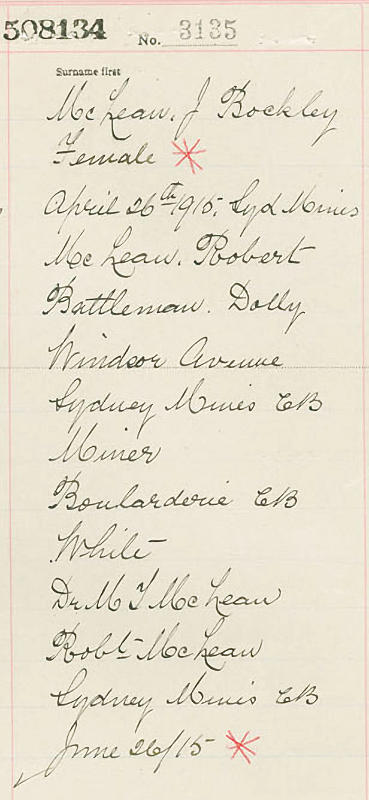 508134 No. 3135
Surname first
McLean, J Bockley
Female
April 26th 1915, Syd Mines
McLean, Robert
Battleman, Dolly
Windsor Avenue
Sydney Mines CB
Miner
Boularderie CB
White
Dr M T McLean
Robt McLean
Sydney Mines CB
June 26/15